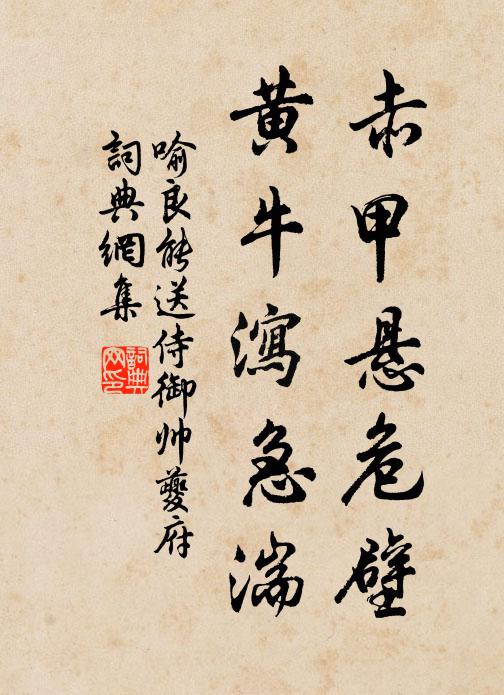 赤甲悬危壁
黄牛瀉急湍
喻良能送侍御帅夔府
詞典網集
詞典
网印